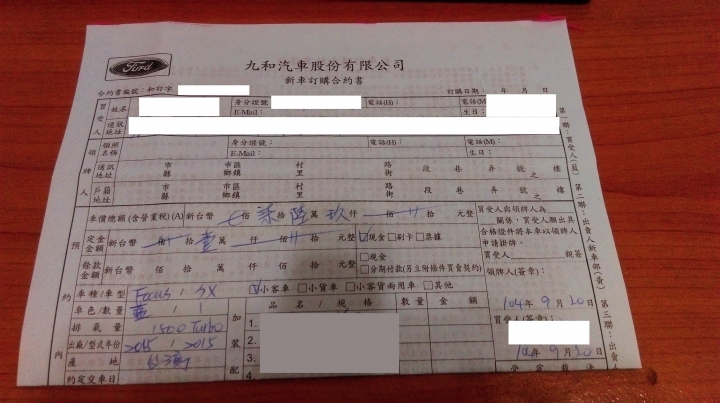 Ford
九和汽車股份有限公司
新車訂購合約書
合約書編號：和訂字
訂購日期： 年 月 日
買受人
姓名
身分證號
電話(H)：
電話(M
E-Mail：
生日：
通訊地址
領牌人
領照名稱
身分證號：
電話(H)：
電話(M)：
E-Mail：
生日：
通訊地址 市縣 市區鄉鎮 村里 路街 段 巷 弄 號之 樓
戶籍地址 市縣 市區鄉鎮 村里 路街 段 巷 弄 號之 樓
預約內
車價總額(含營業稅)(A) 新台幣 佰 柒 拾 陸 萬 玖 仟 佰 拾 元整
定金金額 新台幣 佰 拾 壹 萬 仟 佰 拾 元整 ☑現金□刷卡□票據
餘款金額 新台幣 佰 拾 萬 仟 佰 拾 元整 □現金
□分期付款(另立附條件買賣契約)
買受人與領牌人為
關係，買受人願出具
合格證件將本車以領牌人
申請掛牌。
買受人 親簽
領牌人(簽章)：
車種/車型 Focus / 5X ☑小客車 □小貨車 □小客貨兩用車 □其他
車色/數量 藍 / 1
排氣量 1500 Turbo
出廠/型式年份 2015 / 2015
產地 台灣
約定交車日
加裝配
品名/規格 數量 金額
1.
2.
3.
4.
104年9月20日
買受人(簽章)：
104年9月20日
第一聯：買受人(藍)
第二聯：出賣人新車部(黃)
第三聯：出賣